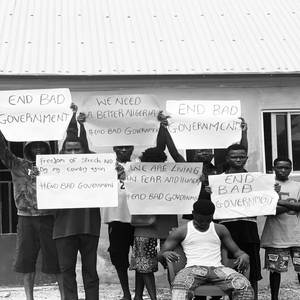 END BAD
GOVERNMENT
WE NEED
A BETTER NIGERIA
#END BAD GOVERNMENT
END BAD
GOVERNMENT
Freedom of Speech NO
my country again
#END BAD GOVERNMENT
WE ARE LIVING
IN FEAR AND HUNGER
#END BAD GOVERNMENT
END BAD
GOVERNMENT